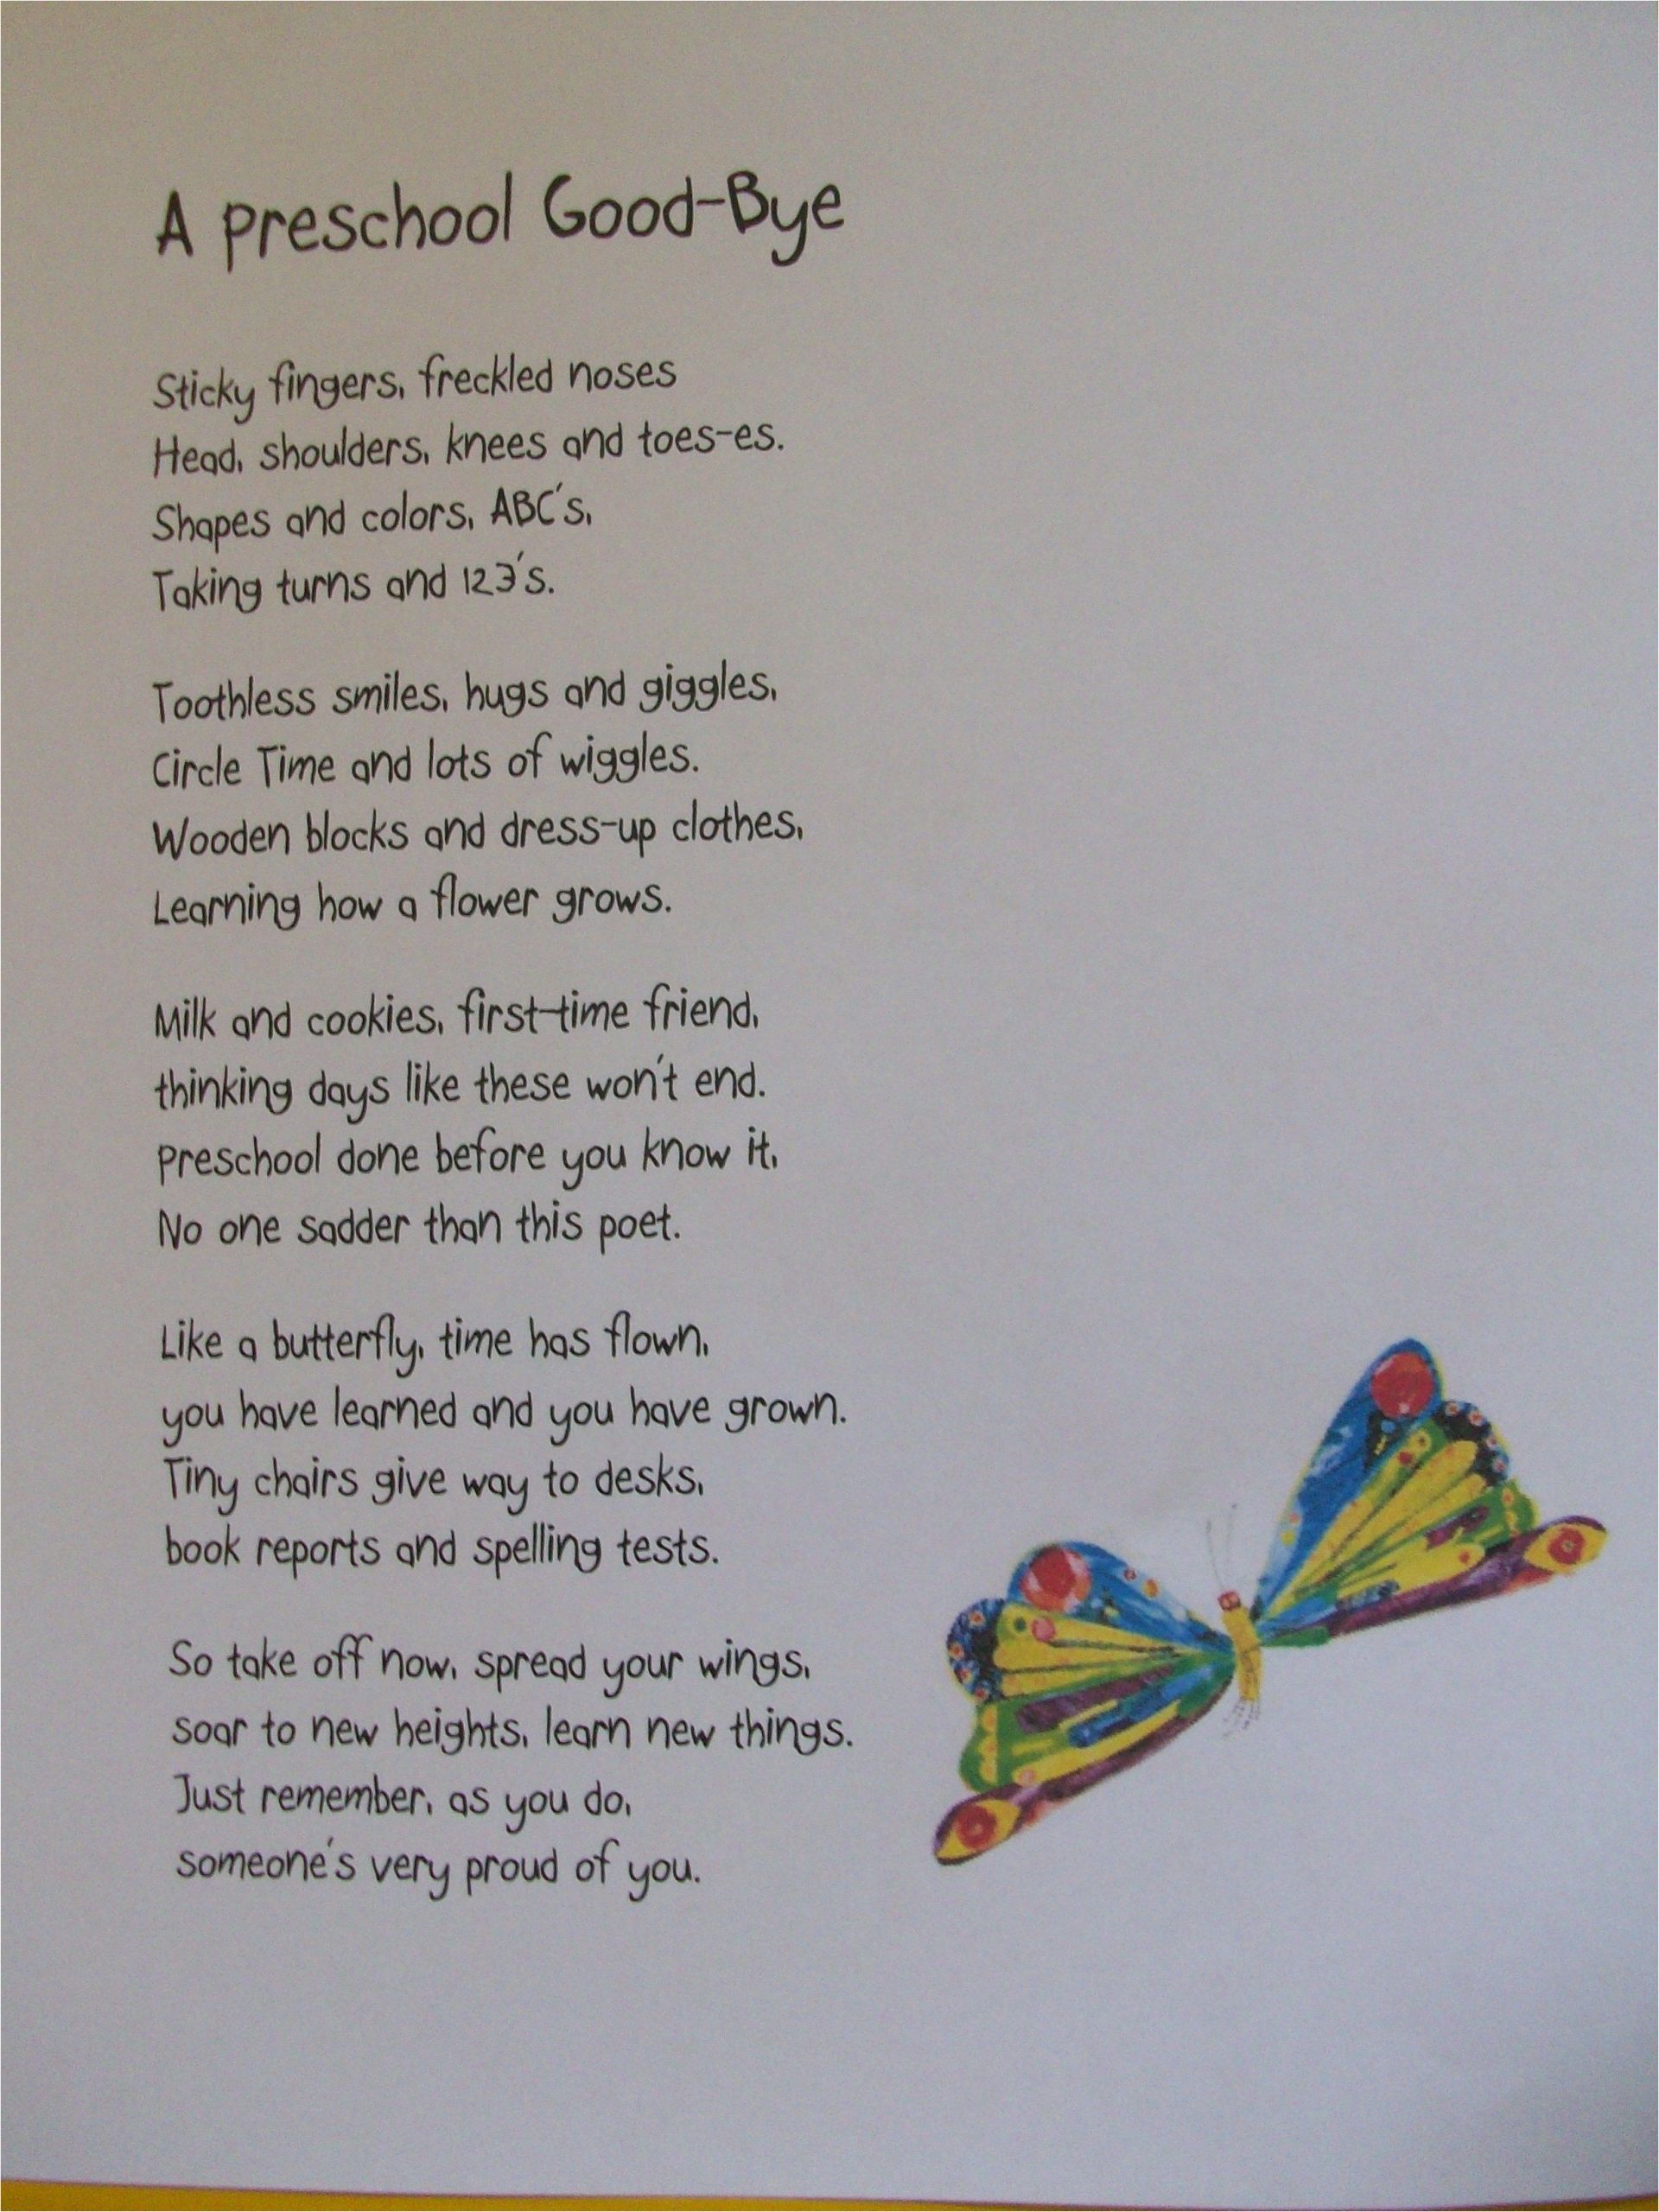 A Preschool Good-Bye
Sticky fingers, freckled noses
Head, shoulders, knees and toes-es.
Shapes and colors, ABC's,
Taking turns and 123's.
Toothless smiles, hugs and giggles,
Circle Time and lots of wiggles.
Wooden blocks and dress-up clothes,
Learning how a flower grows.
Milk and cookies, first-time friend,
thinking days like these won't end.
Preschool done before you know it,
No one sadder than this poet.
Like a butterfly, time has flown,
you have learned and you have grown.
Tiny chairs give way to desks,
book reports and spelling tests.
So take off now, spread your wings,
soar to new heights, learn new things.
Just remember, as you do,
someone's very proud of you.